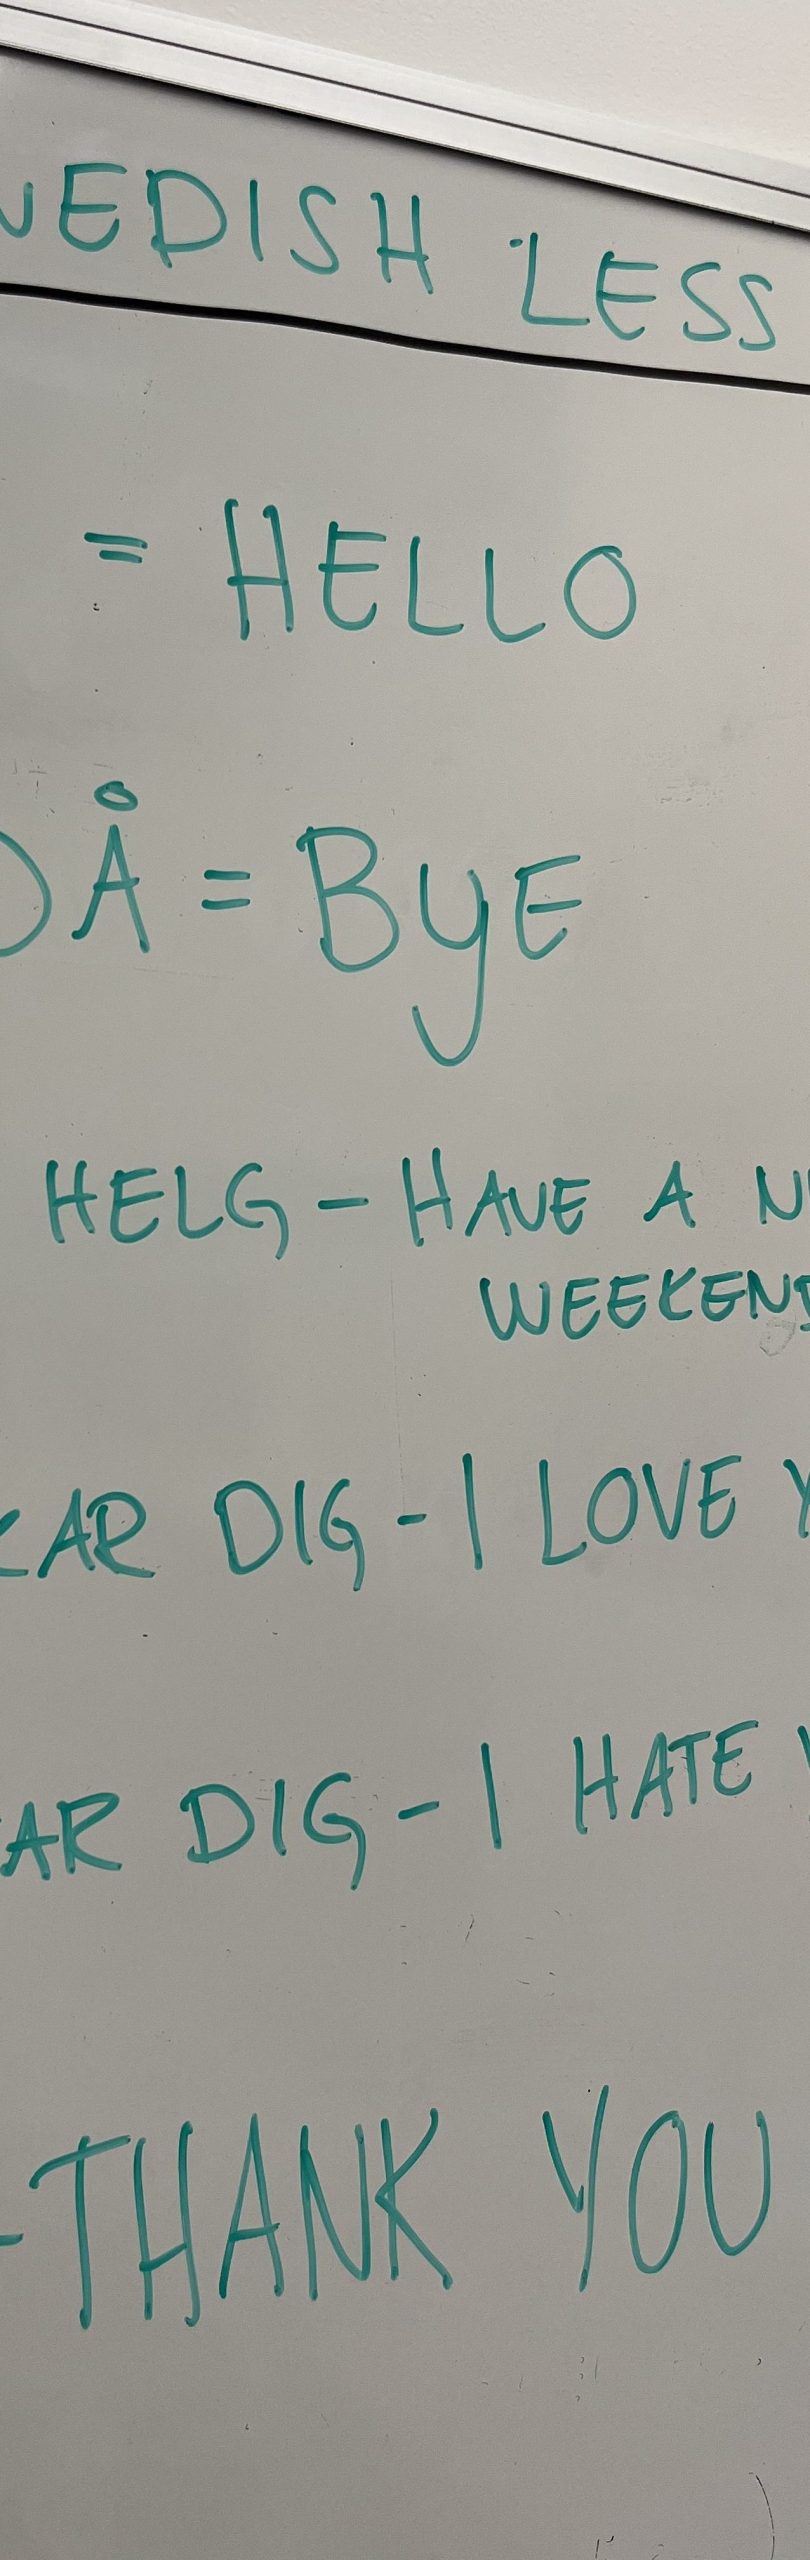 EDISH LESS
= HELLO
DÅ = BYE
HELG - HAVE A
WEEKEND
KAR DIG - I LOVE
AR DIG - I HATE
- THANK YOU